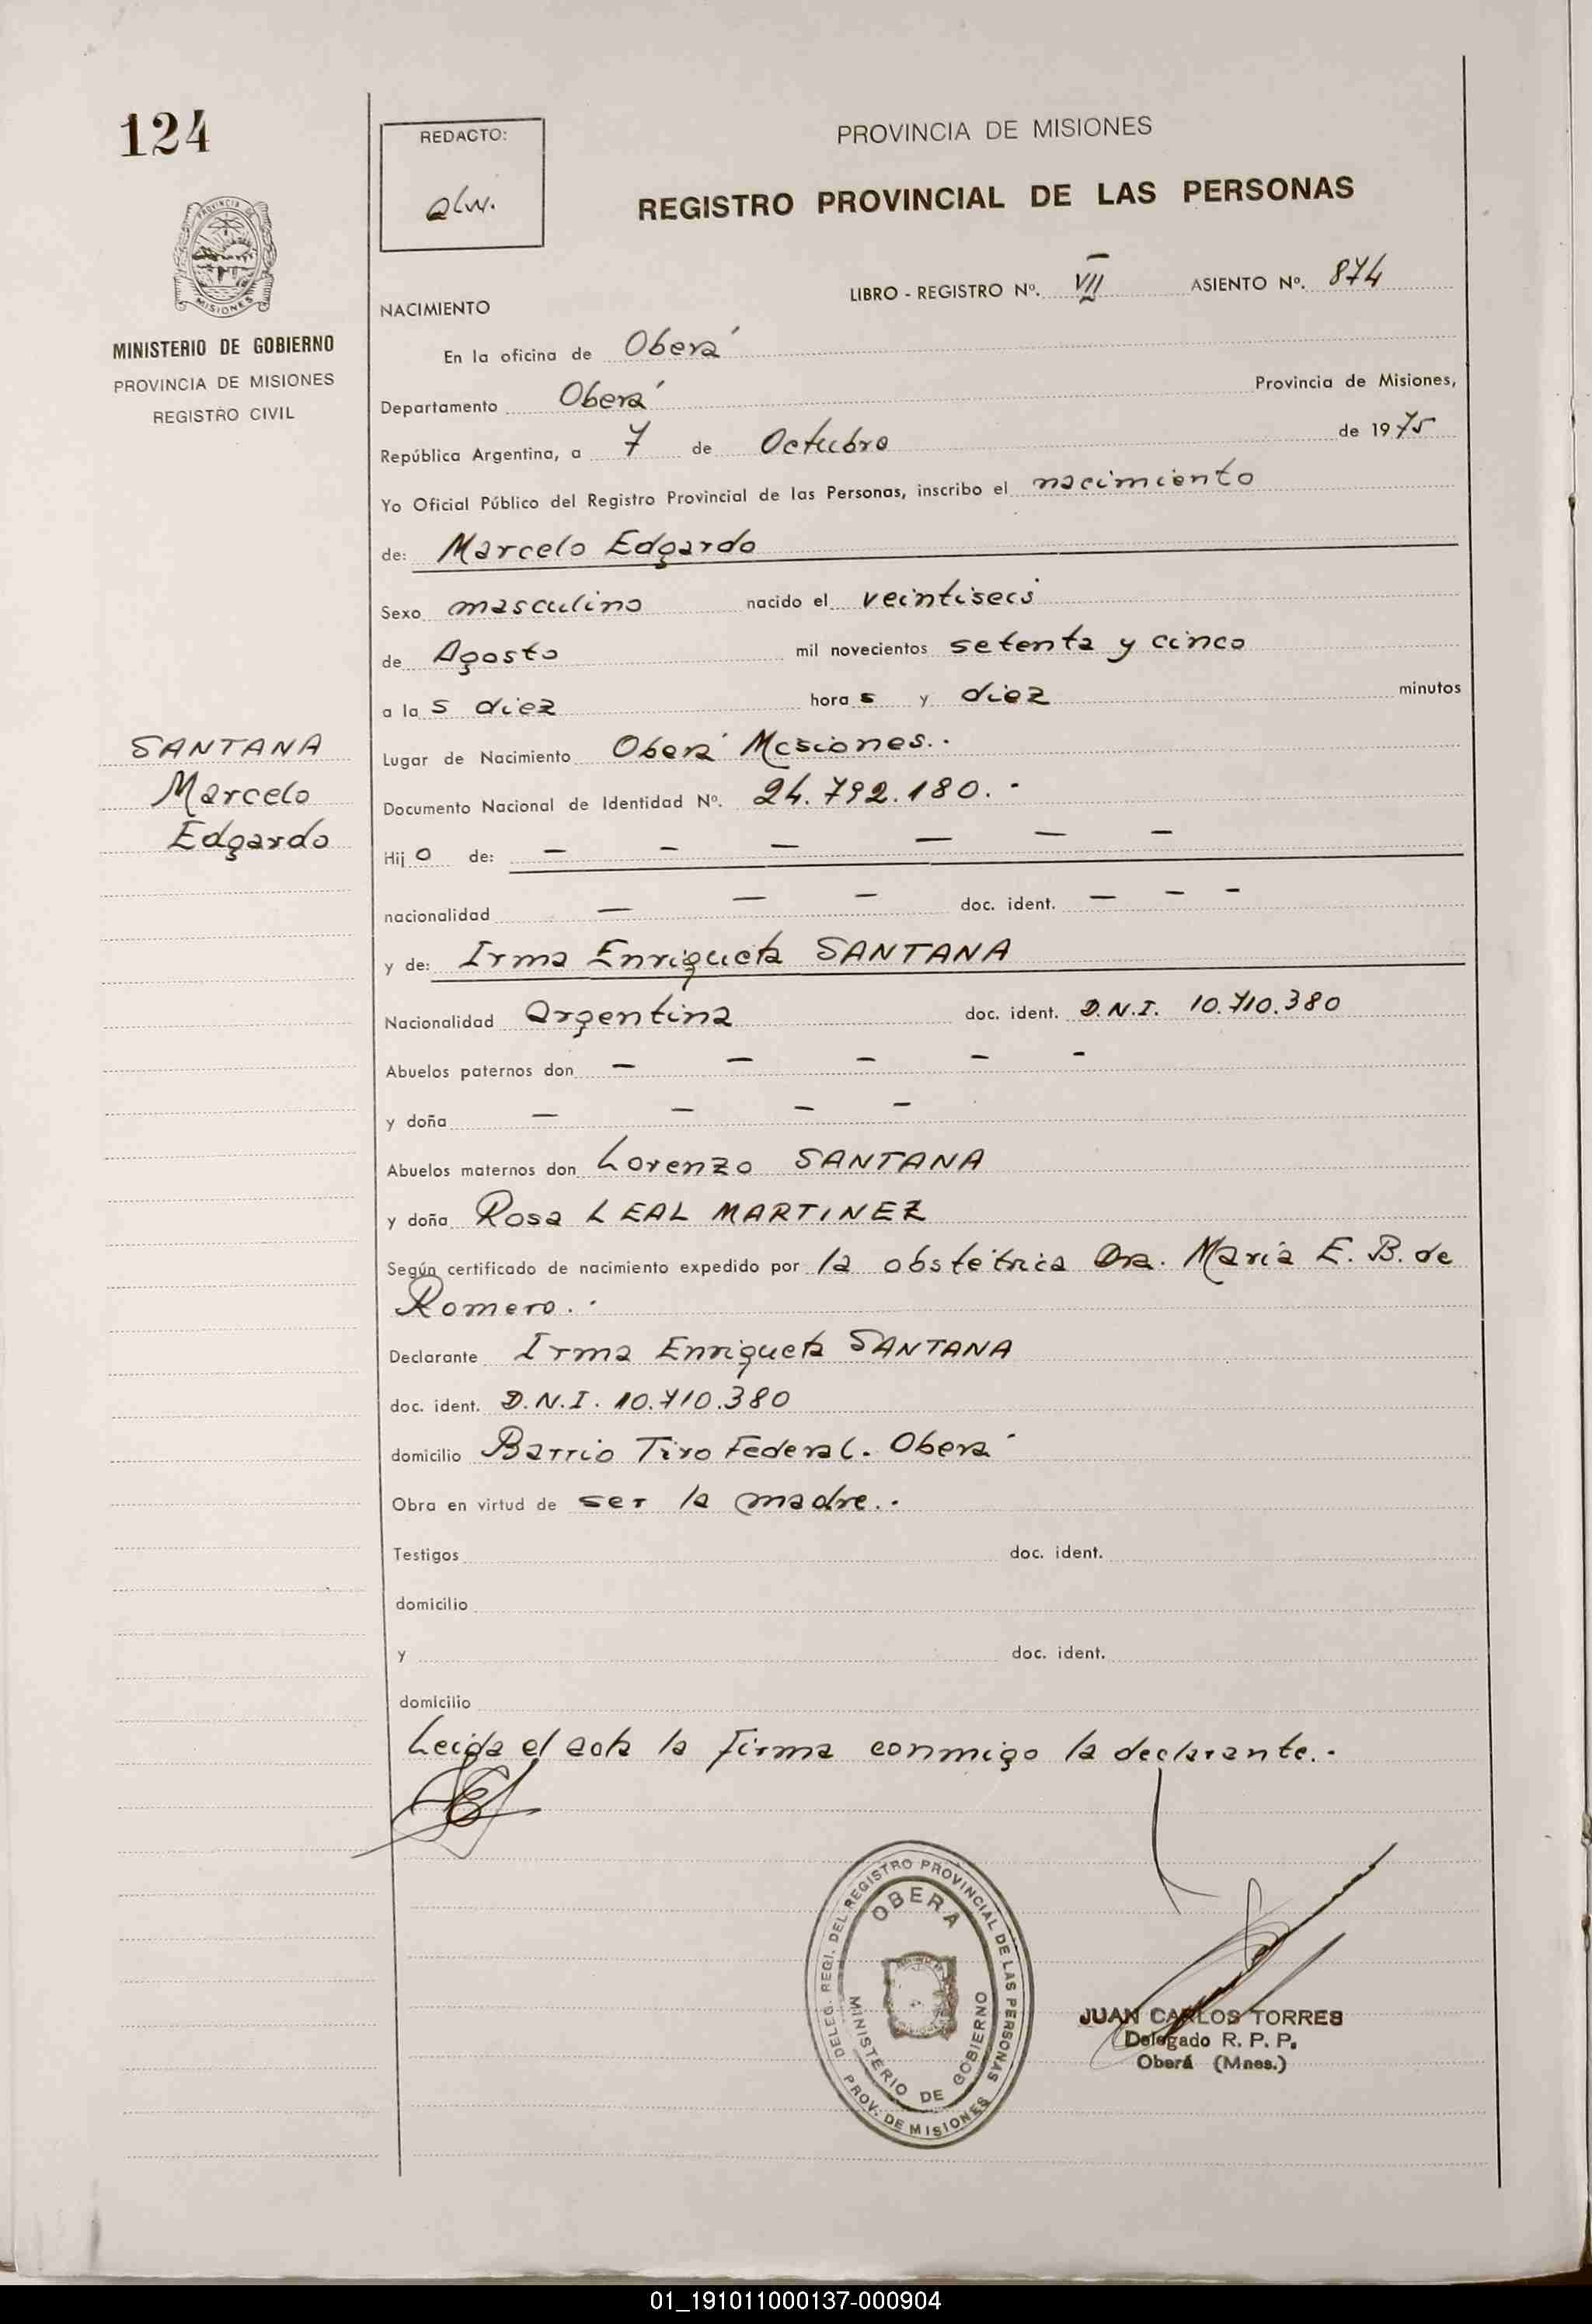 124
REDACTO:
PROVINCIA DE MISIONES
REGISTRO PROVINCIAL DE LAS PERSONAS
LIBRO - REGISTRO Nº. VII ASIENTO Nº. 874
MINISTERIO DE GOBIERNO
PROVINCIA DE MISIONES
REGISTRO CIVIL
NACIMIENTO
En la oficina de Oberá
Departamento Oberá Provincia de Misiones,
República Argentina, a 7 de Octubre de 1975
Yo Oficial Público del Registro Provincial de las Personas, inscribo el nacimiento
de: Marcelo Edgardo
Sexo masculino nacido el veintiseis
de Agosto mil novecientos setenta y cinco
a las diez horas y diez minutos
SANTANA
Marcelo
Edgardo
Lugar de Nacimiento Oberá Misiones.-
Documento Nacional de Identidad Nº. 24.792.180.-
Hijo de: — — — — — —
nacionalidad — — — doc. ident. — — —
y de: Irma Enriqueta SANTANA
Nacionalidad Argentina doc. ident. D.N.I. 10.710.380
Abuelos paternos don — — — — —
y doña — — — —
Abuelos maternos don Lorenzo SANTANA
y doña Rosa LEAL MARTINEZ
Según certificado de nacimiento expedido por la obstétrica Dra. María E. B. de
Romero.-
Declarante Irma Enriqueta SANTANA
doc. ident. D.N.I. 10.710.380
domicilio Barrio Tiro Federal. Oberá
Obra en virtud de ser la madre.-
Testigos doc. ident.
domicilio
y doc. ident.
domicilio
Leida el acta la firma conmigo la declarante.-
DELEG. REGI. DEL REGISTRO PROVINCIAL DE LAS PERSONAS
OBERÁ
MINISTERIO DE GOBIERNO
PROV. DE MISIONES
JUAN CARLOS TORRES
Delegado R. P. P.
Oberá (Mnes.)
01_191011000137-000904